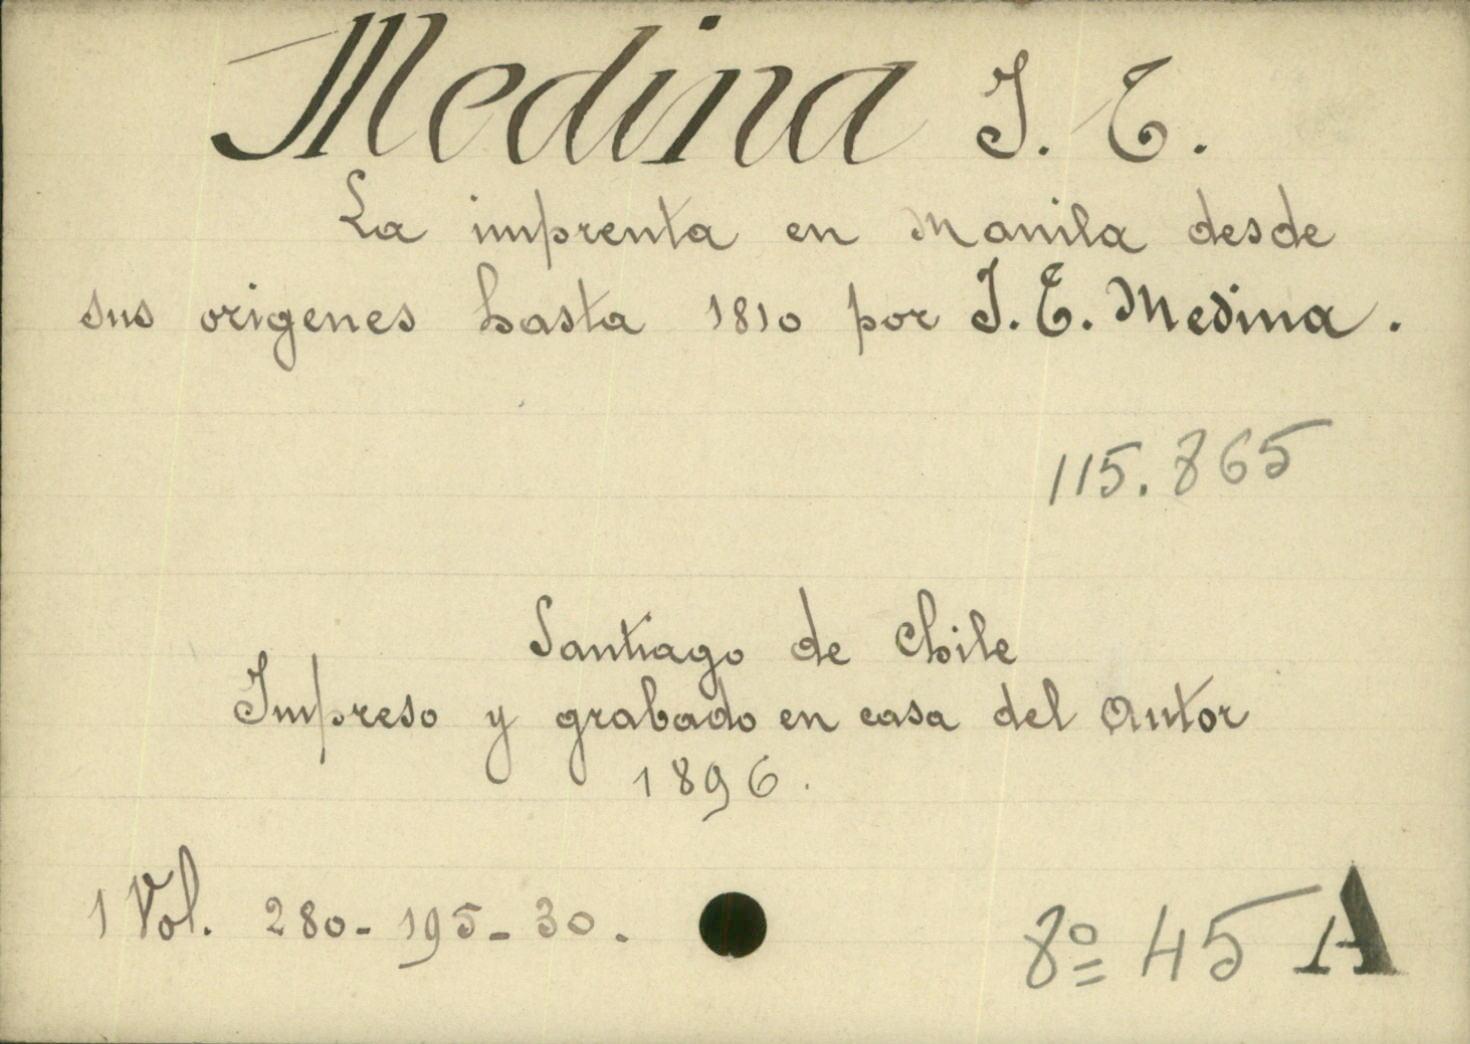 Medina J. T.
La imprenta en Manila desde
sus origenes hasta 1810 por J. T. Medina.
115.865
Santiago de Chile
Impreso y grabado en casa del autor
1896.
1 Vol. 280-195-30.
8º 45 A